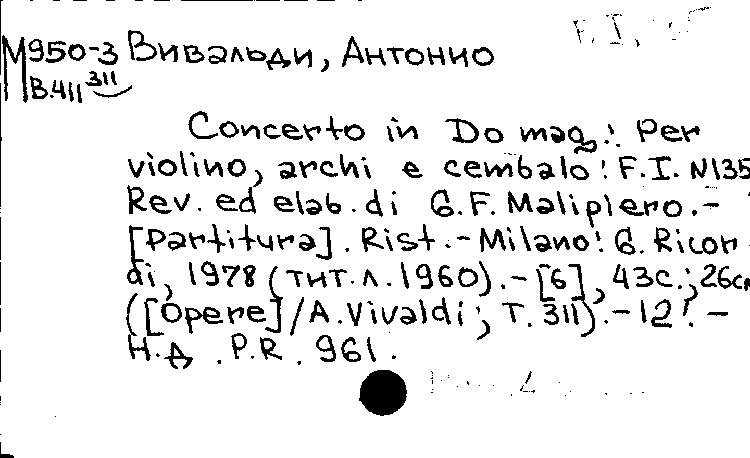 М950-3 Вивальди, Антонио
В.411 311
Concerto in Do mag.: Per
violino, archi e cembalo: F.I. N135
Rev. ed elab. di G.F. Malipiero.-
[Partitura]. Rist.-Milano: G. Ricor
di, 1978 (тит.л. 1960).-[6], 43с.; 26см
([Opere]/A.Vivaldi; T. 311).-12!.-
Н.д. P.R. 961.